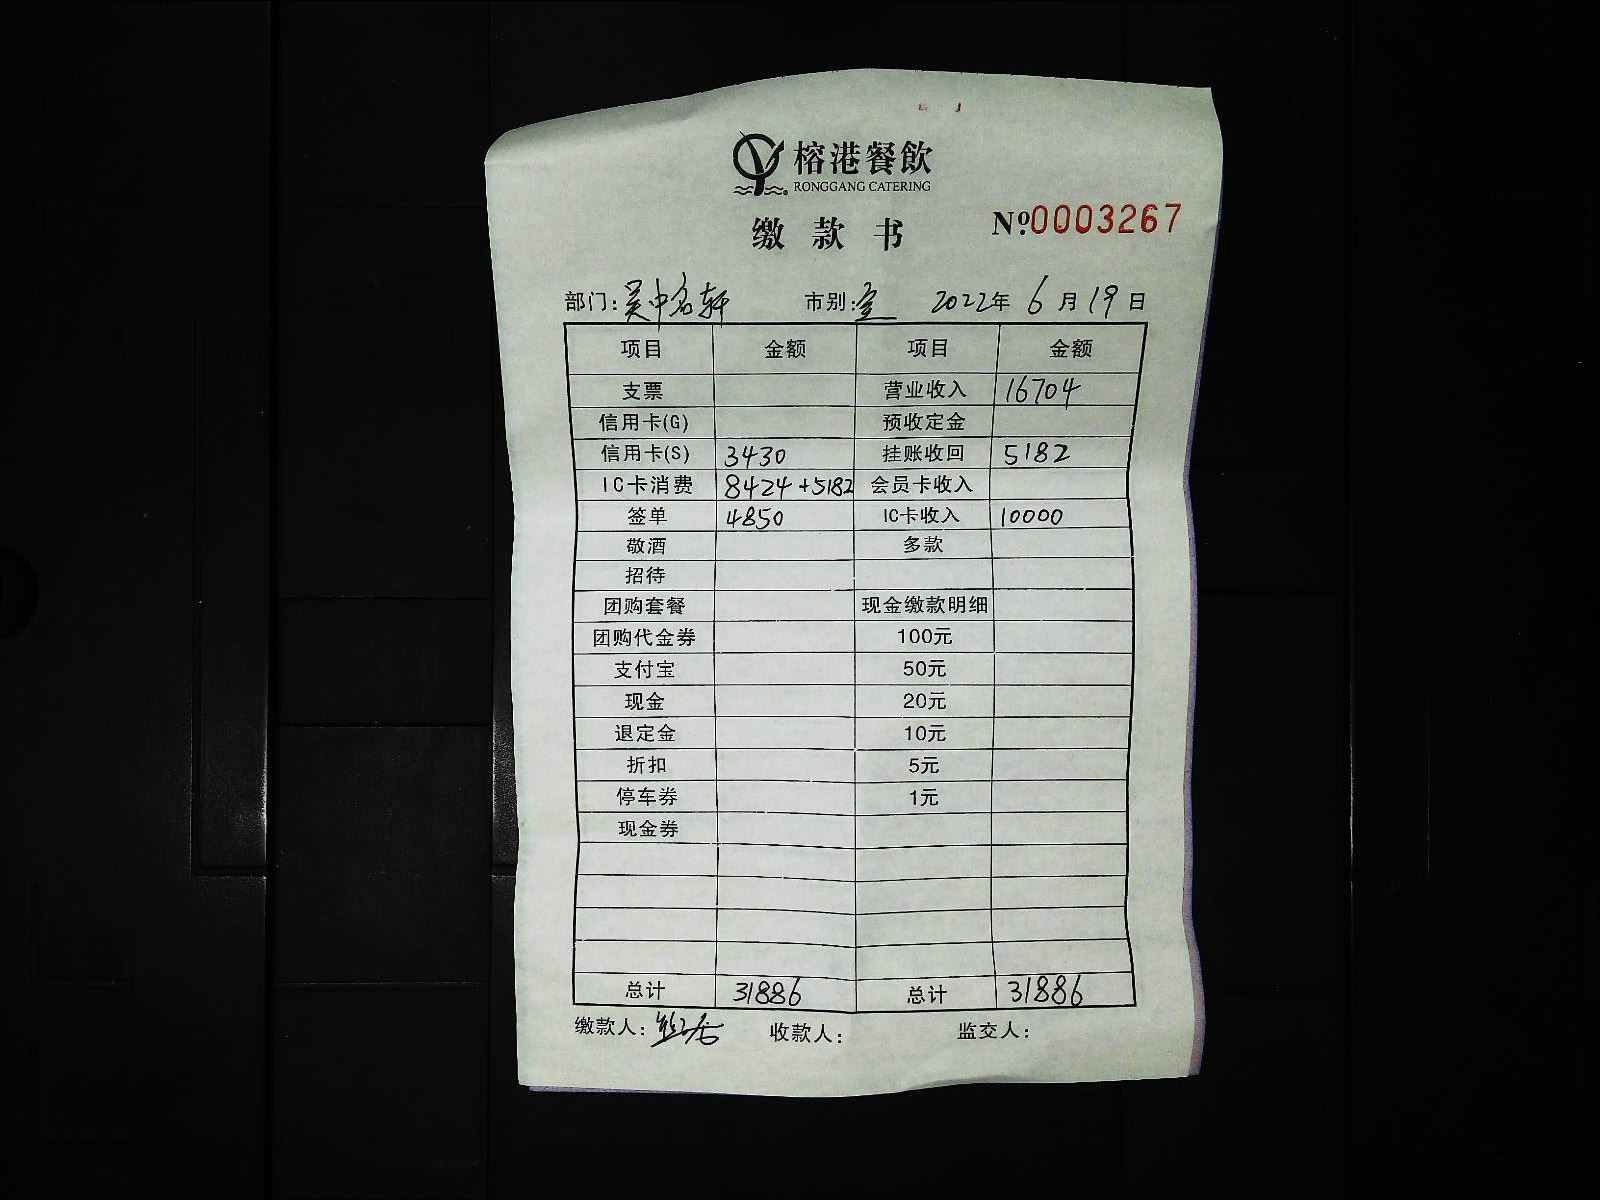 榕港餐飲
RONGGANG CATERING
缴款书
Nº:0003267
部门:吴中名轩 市别: 2022年6月19日
项目 金额 项目 金额
支票 营业收入 16704
信用卡(G) 预收定金
信用卡(S) 3430 挂账收回 5182
IC卡消费 8424+5182 会员卡收入
签单 4850 IC卡收入 10000
敬酒 多款
招待
团购套餐 现金缴款明细
团购代金券 100元
支付宝 50元
现金 20元
退定金 10元
折扣 5元
停车券 1元
现金券
总计 31886 总计 31886
缴款人: 收款人: 监交人: